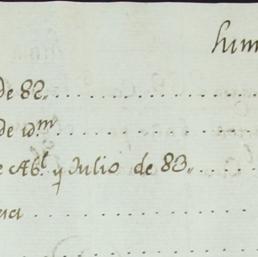 hum
de 82.
de idm
e Abl y Julio de 83.